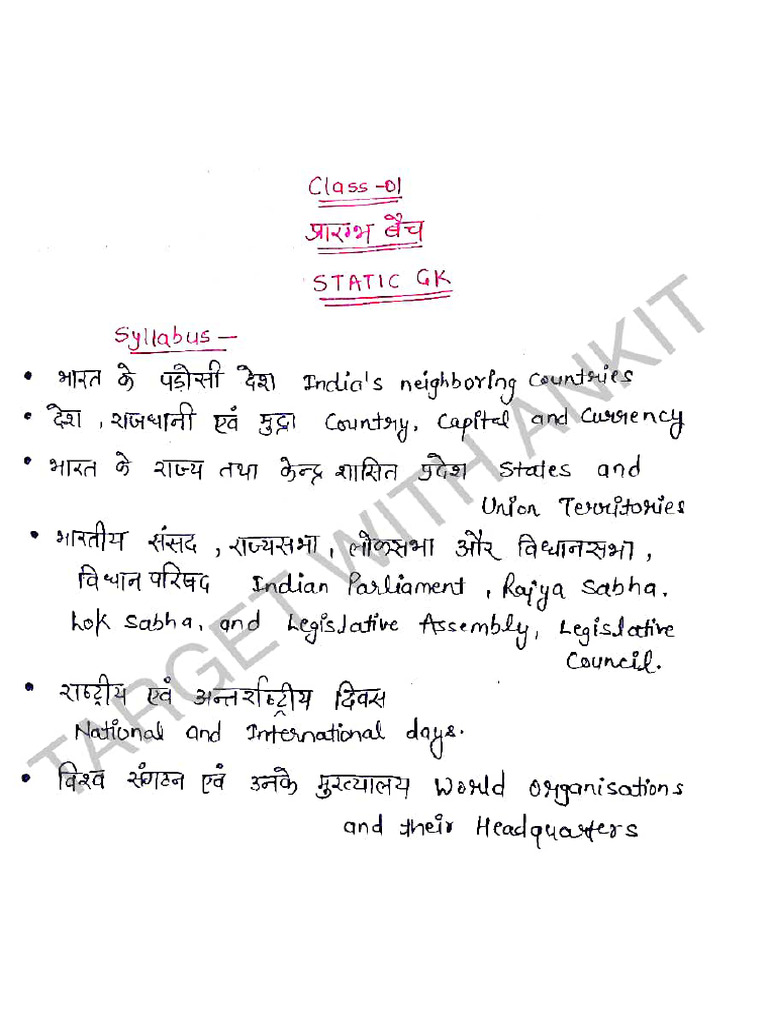 Class-01
प्रारम्भ बैच
STATIC GK
Syllabus –
• भारत के पड़ोसी देश India's neighboring countries
• देश, राजधानी एवं मुद्रा Country, Capital and Currency
• भारत के राज्य तथा केन्द्र शासित प्रदेश States and
Union Territories
• भारतीय संसद, राज्यसभा, लोकसभा और विधानसभा,
विधान परिषद Indian Parliament, Rajya Sabha,
Lok Sabha, and Legislative Assembly, Legislative
Council.
• राष्ट्रीय एवं अन्तर्राष्ट्रीय दिवस
National and International days.
• विश्व संगठन एवं उनके मुख्यालय World Organisations
and their Headquarters
TARGET WITH ANKIT